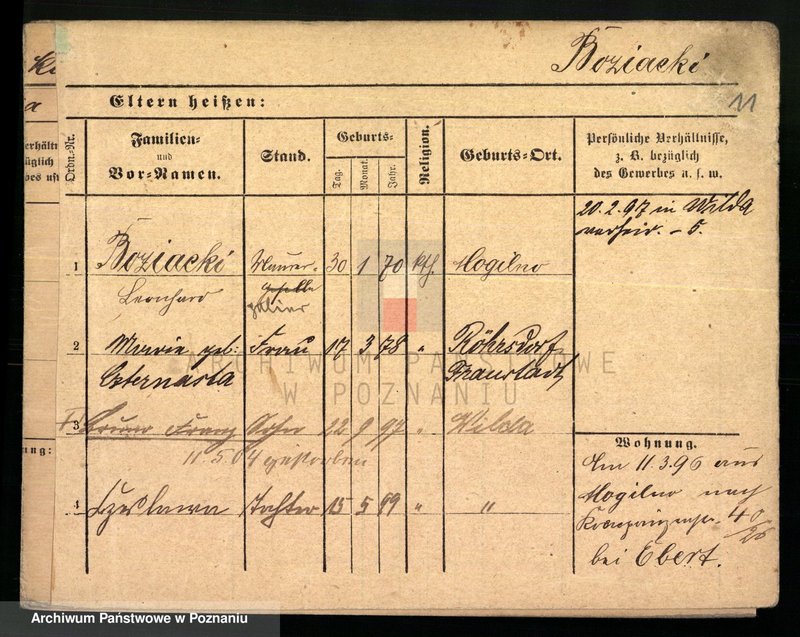 Boziacki
11
Eltern heißen:
Ordn.-Nr.
Familien-
und
Vor-Namen.
Stand.
Geburts-
Tag.
Monat.
Jahr.
Religion.
Geburts-Ort.
Persönliche Verhältnisse,
z. B. bezüglich
des Gewerbes u. s. w.
20.2.97 in Wilda
verheir. - 5.
1 Boziacki Maurer- 30 1 70 kth. Mogilno
Leonhard geselle
polier
2 Marie geb. Frau 17 3 78 " Röhrsdorf
Fraustadt
3 Bruno Franz Sohn 22 9 97 " Wilda
11.5.04 gestorben
4 Czeslawa Tochter 15 5 99 " "
Wohnung.
Am 11.3.96 aus
Mogilno nach
40
bei Ebert.
ARCHIWUM PAŃSTWOWE
W POZNANIU
Archiwum Państwowe w Poznaniu